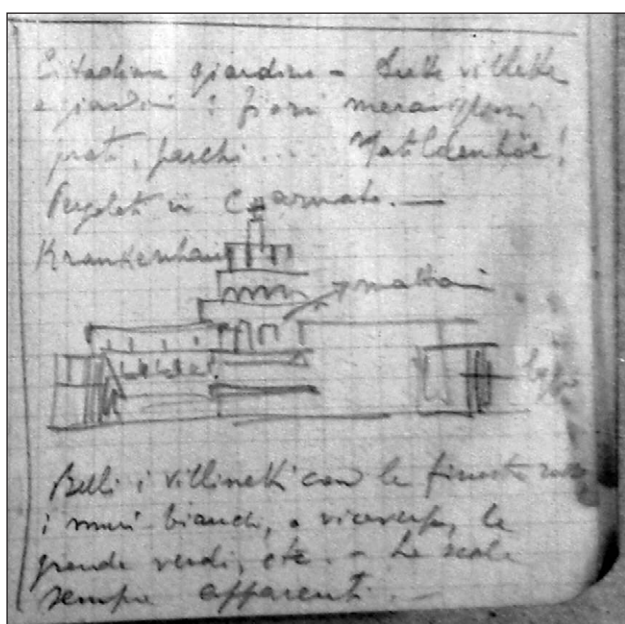 Cittadina giardino - Belle villette
e giardini: fiori meravigliosi
prati, parchi... Matildenhöe!
in C armato. —
Krankenhaus
mattoni
Belli i villinetti con le finestre
i muri bianchi, o viceversa, le
verdi, etc. - Le scale
sempre apparenti. —